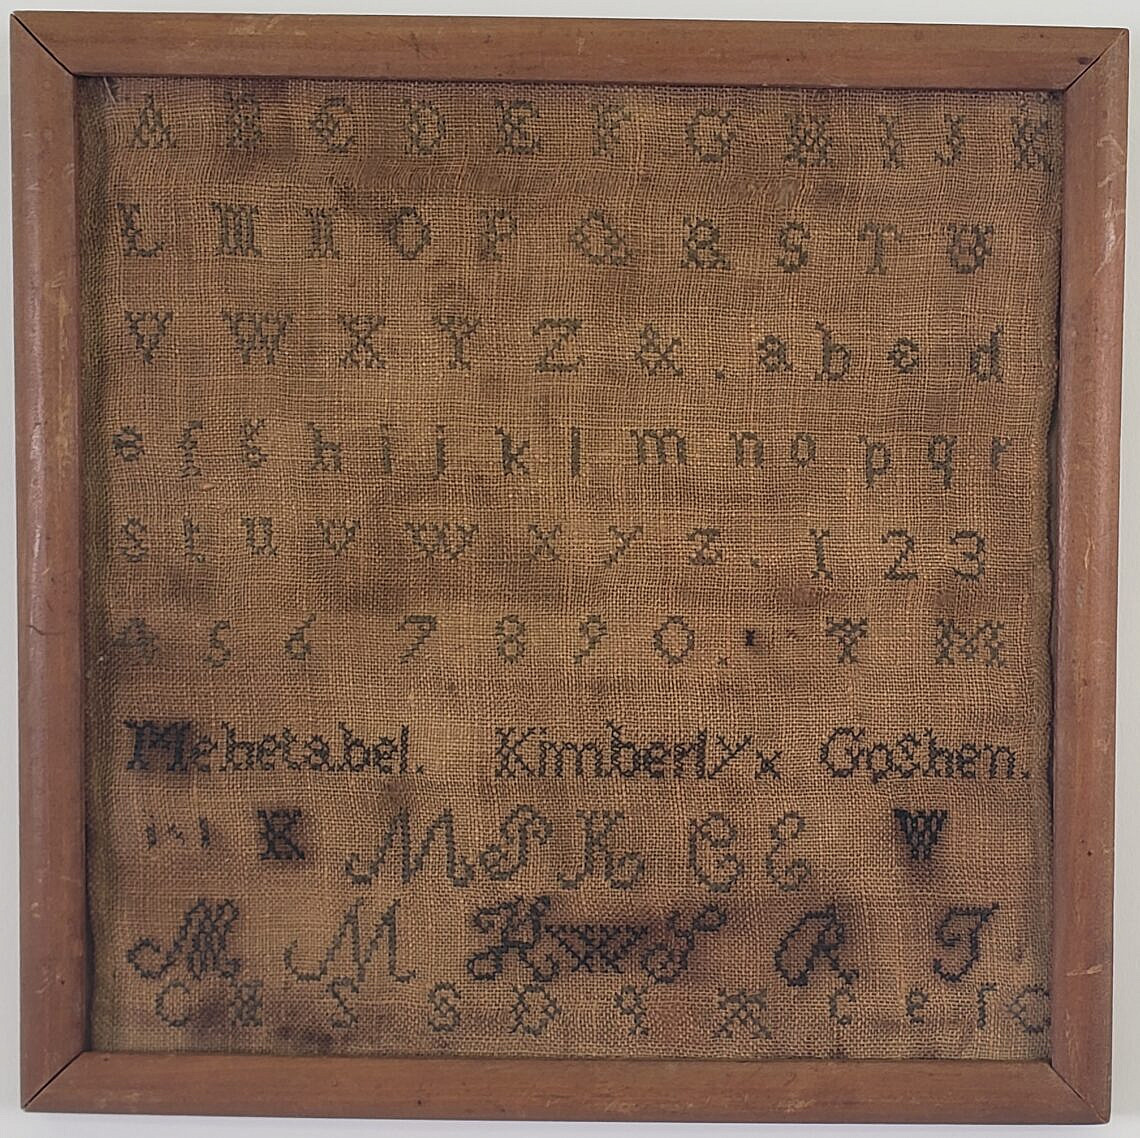 A B C D E F G H I J K
L M N O P Q R S T U
V W X Y Z & . a b c d
e f g h i j k l m n o p q r
s t u v w x y z . 1 2 3
4 5 6 7 8 9 0 . Y M
Mehetabel. Kimberly x Goshen.
K M P K C E W
M M K W S R T
C S S D q c e r C